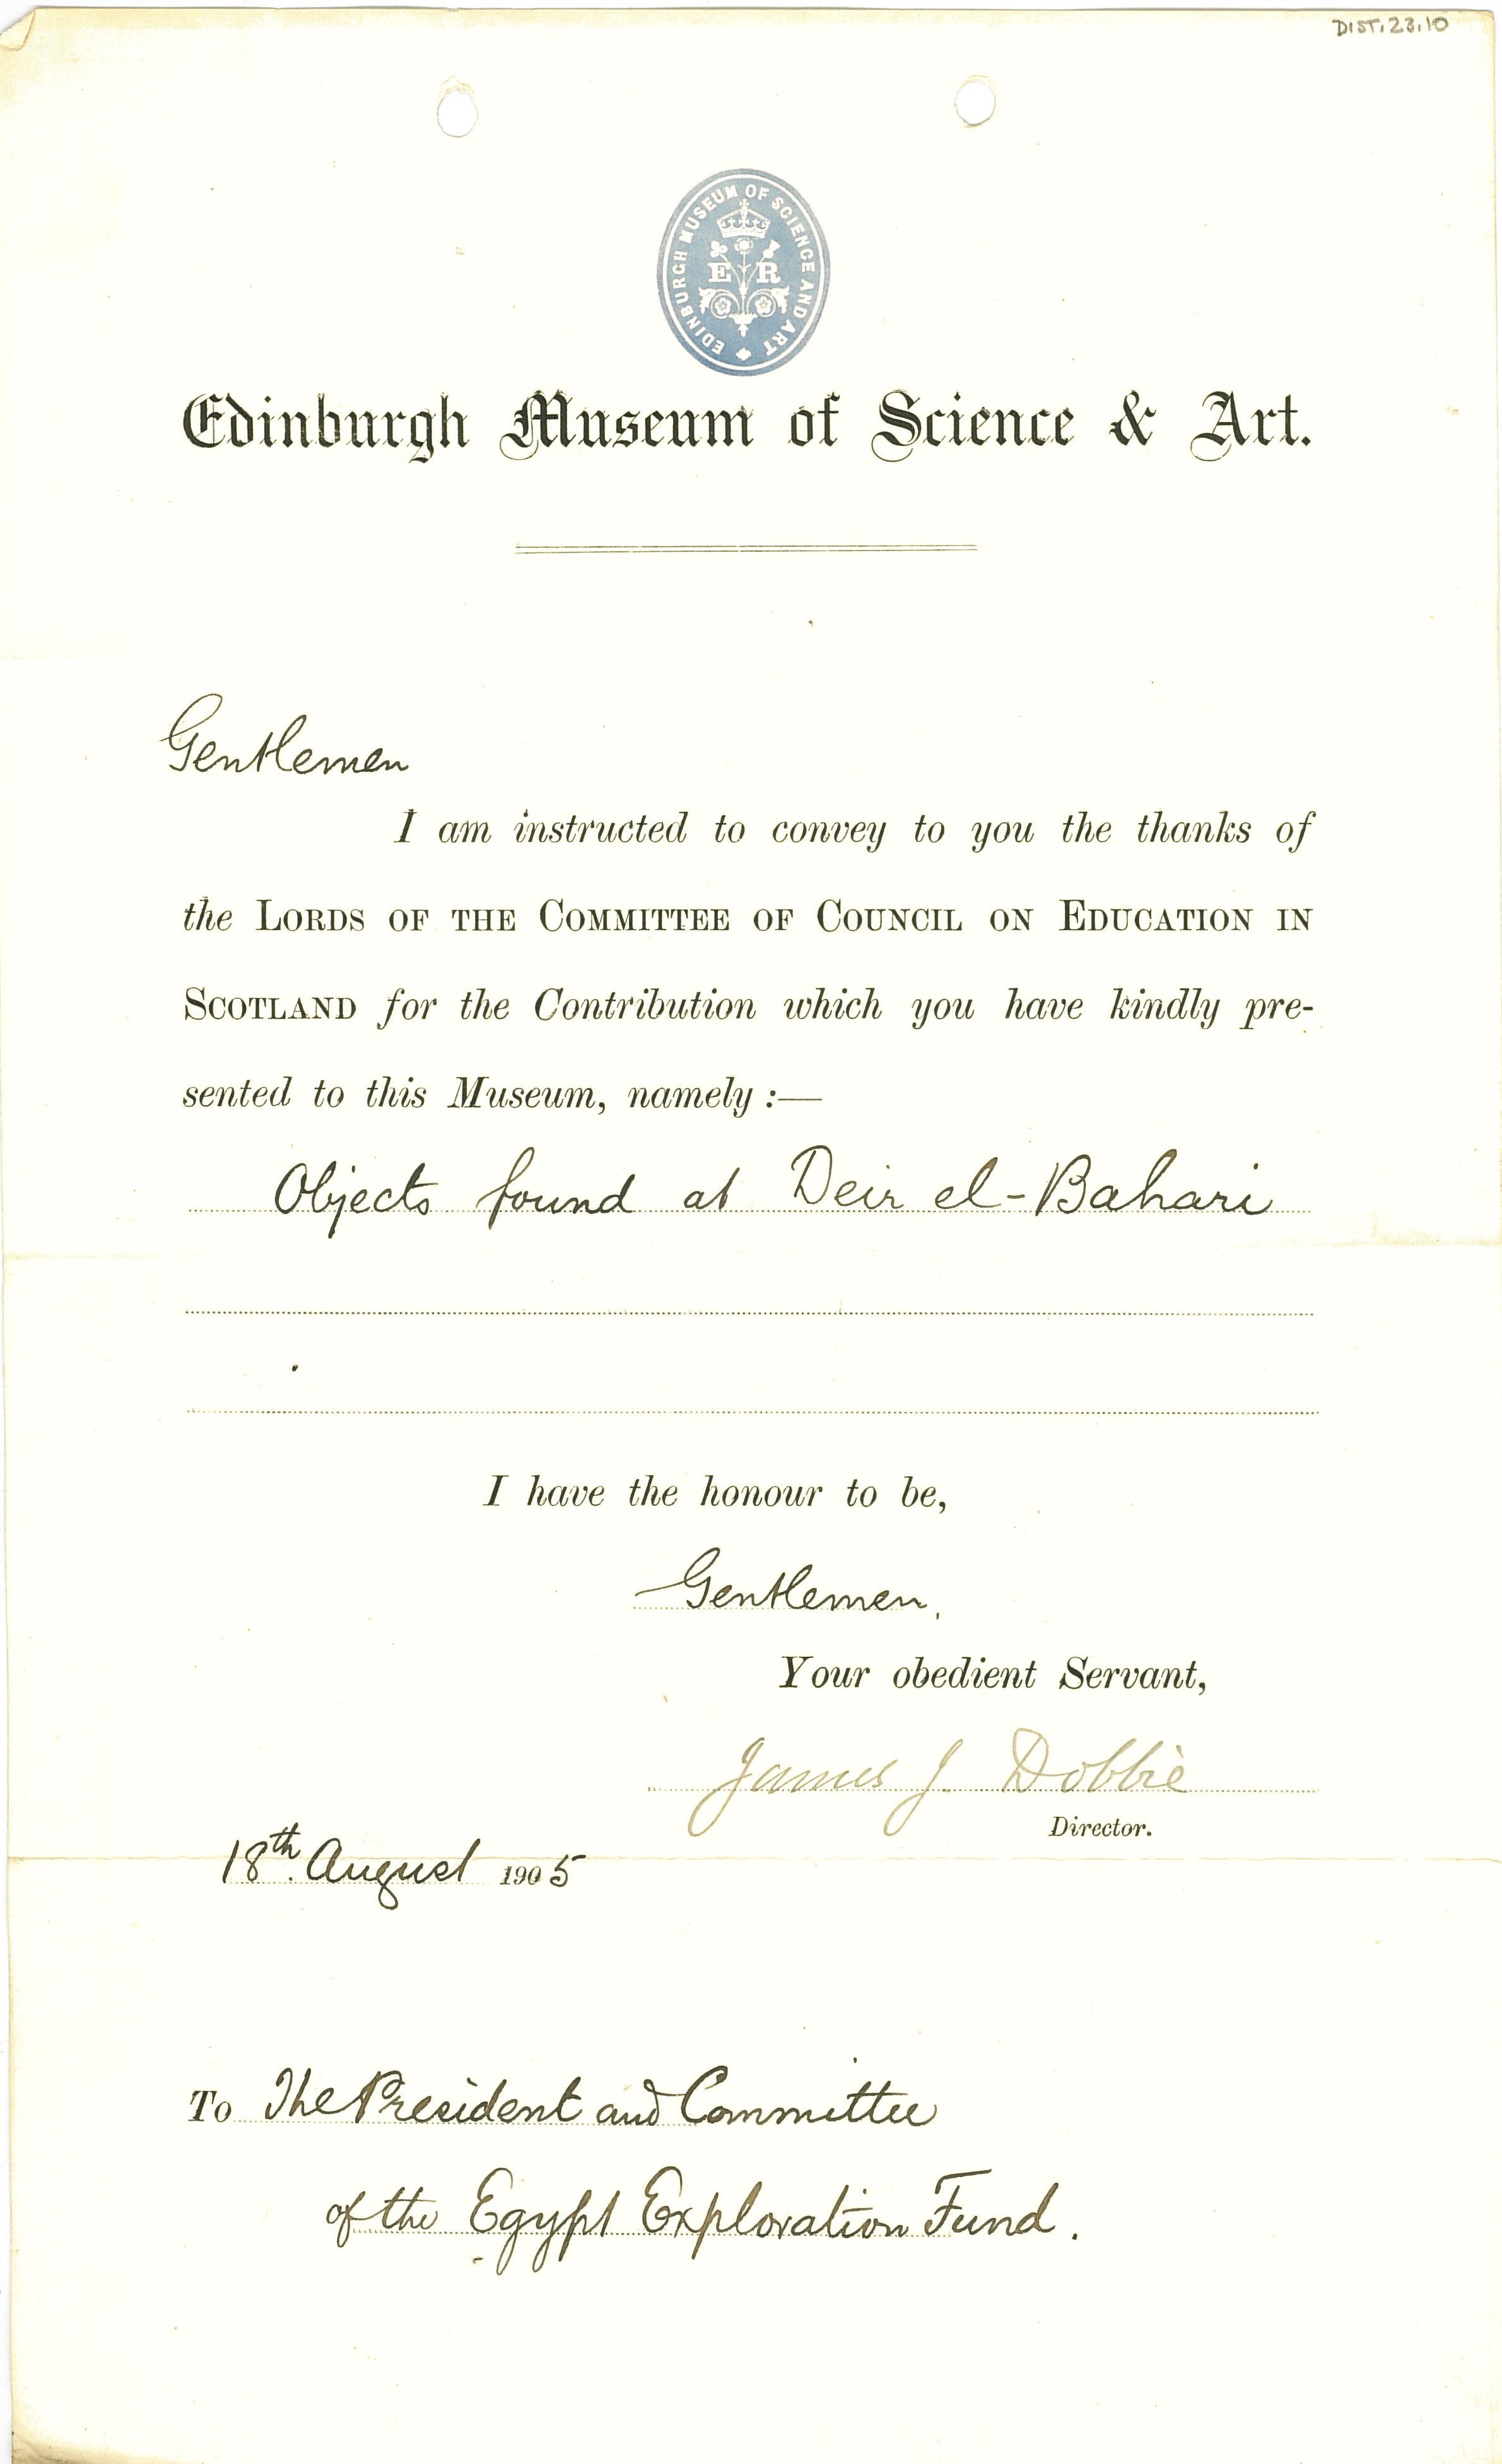 DIST.23.10
EDINBURGH MUSEUM OF SCIENCE AND ART
E R
Edinburgh Museum of Science & Art.
Gentlemen
I am instructed to convey to you the thanks of
the LORDS OF THE COMMITTEE OF COUNCIL ON EDUCATION IN
SCOTLAND for the Contribution which you have kindly pre-
sented to this Museum, namely :—
Objects found at Deir el-Bahari
I have the honour to be,
Gentlemen,
Your obedient Servant,
James J. Dobbie
Director.
18th. August 1905
To The President and Committee
of the Egypt Exploration Fund.